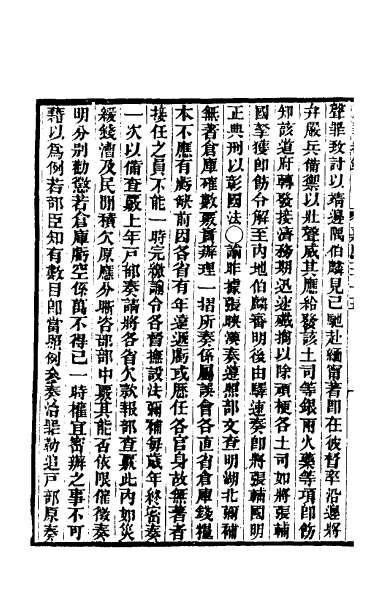 聲罪致討以靖邊隅伯麟見已馳赴緬甯著即在彼督率沿邊將
弁嚴兵備禦以壯聲威其應給發該土司等銀兩火藥等項即飭
知該道府轉發接濟務期迅速殲擒以除頑梗各土司如將張輔
國拏獲即飭令解至內地伯麟審明後由驛速奏即將張輔國明
正典刑以彰國法○諭昨據張映漢奏遵照部文查明湖北彌補
無著倉庫確數覈實辦理一摺所奏係屬誤會各直省倉庫錢糧
本不應有虧缺前因各省有年遠遞虧或歷任各官身故無著者
接任之員不能一時完繳諭令各督撫設法彌補每歲年終密奏
一次以備查覈上年戶部奏請將各省欠款報部查覈此內如災
緩錢漕及民間積欠原應分晰咨部部中覈其能否依限催徵奏
明分別勸懲若倉庫虧空係萬不得已一時權宜密辦之事不可
藉以為例若部臣知有數目即當照例參奏治罪勒追戶部原奏